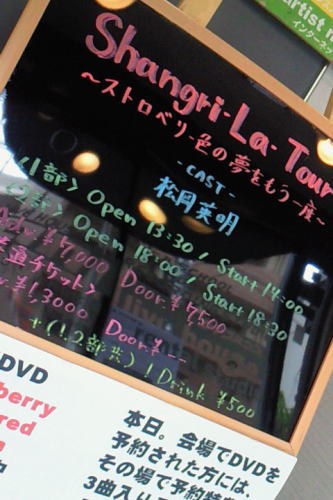 artist
インター
Shangri-La-Tour
〜ストロベリ色の夢をもう一度〜
-CAST-
松岡英明
〈1部〉 Open 13:30 / Start 14:00
〈2部〉 Open 18:00 / Start 18:30
Adv. ¥7,000 Door. ¥7,500
通チケット〉
¥1,3000 Door. ¥--
+(1.2部共) 1Drink ¥500
DVD
berry
red
本日。会場でDVDを
予約された方には
その場で予約特
3曲入り